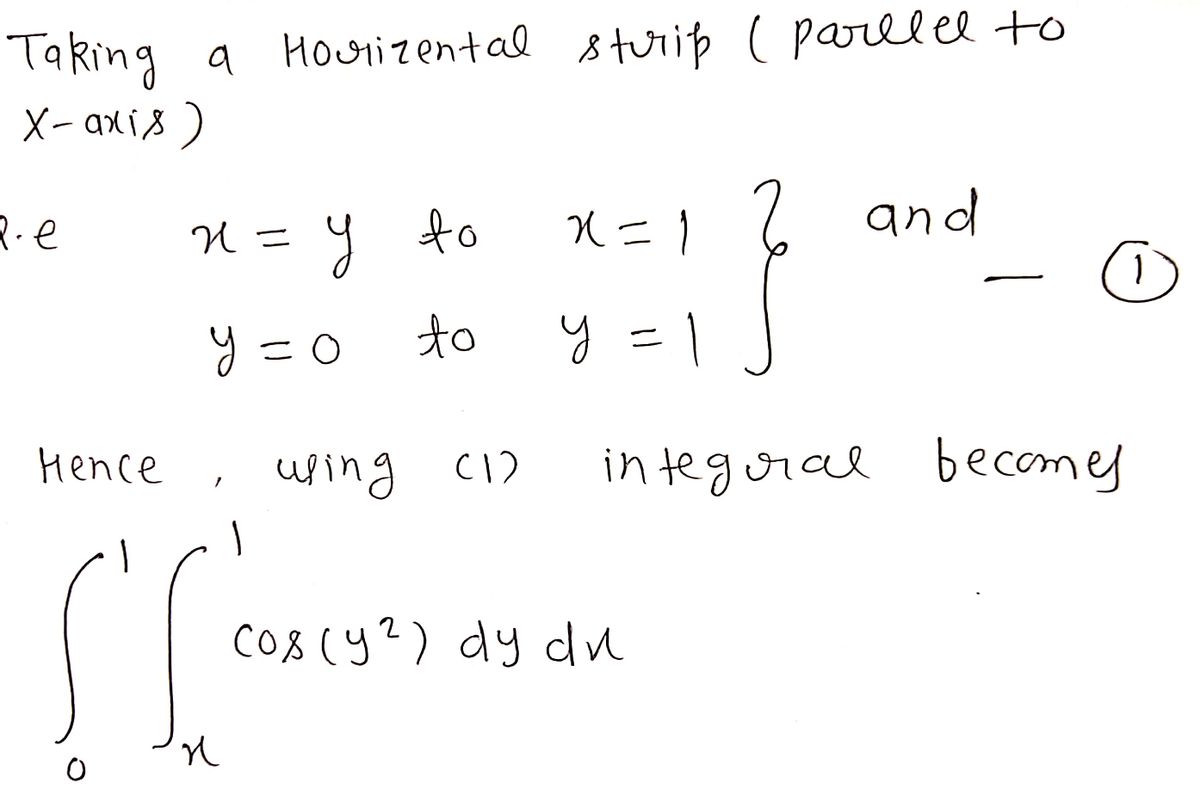 Taking a Horizental strip ( parellel to
X-axis )
i.e x = y to x = 1 } and
y = 0 to y = 1 — ①
Hence , using (1) integral becomes
∫₀¹ ∫ₓ¹ cos(y²) dy dx